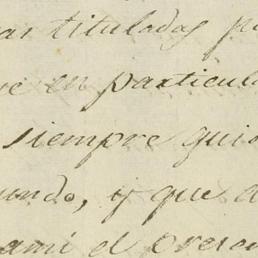 ar tituladas p
e en particul
siempre qui
undo, y que a
ami el